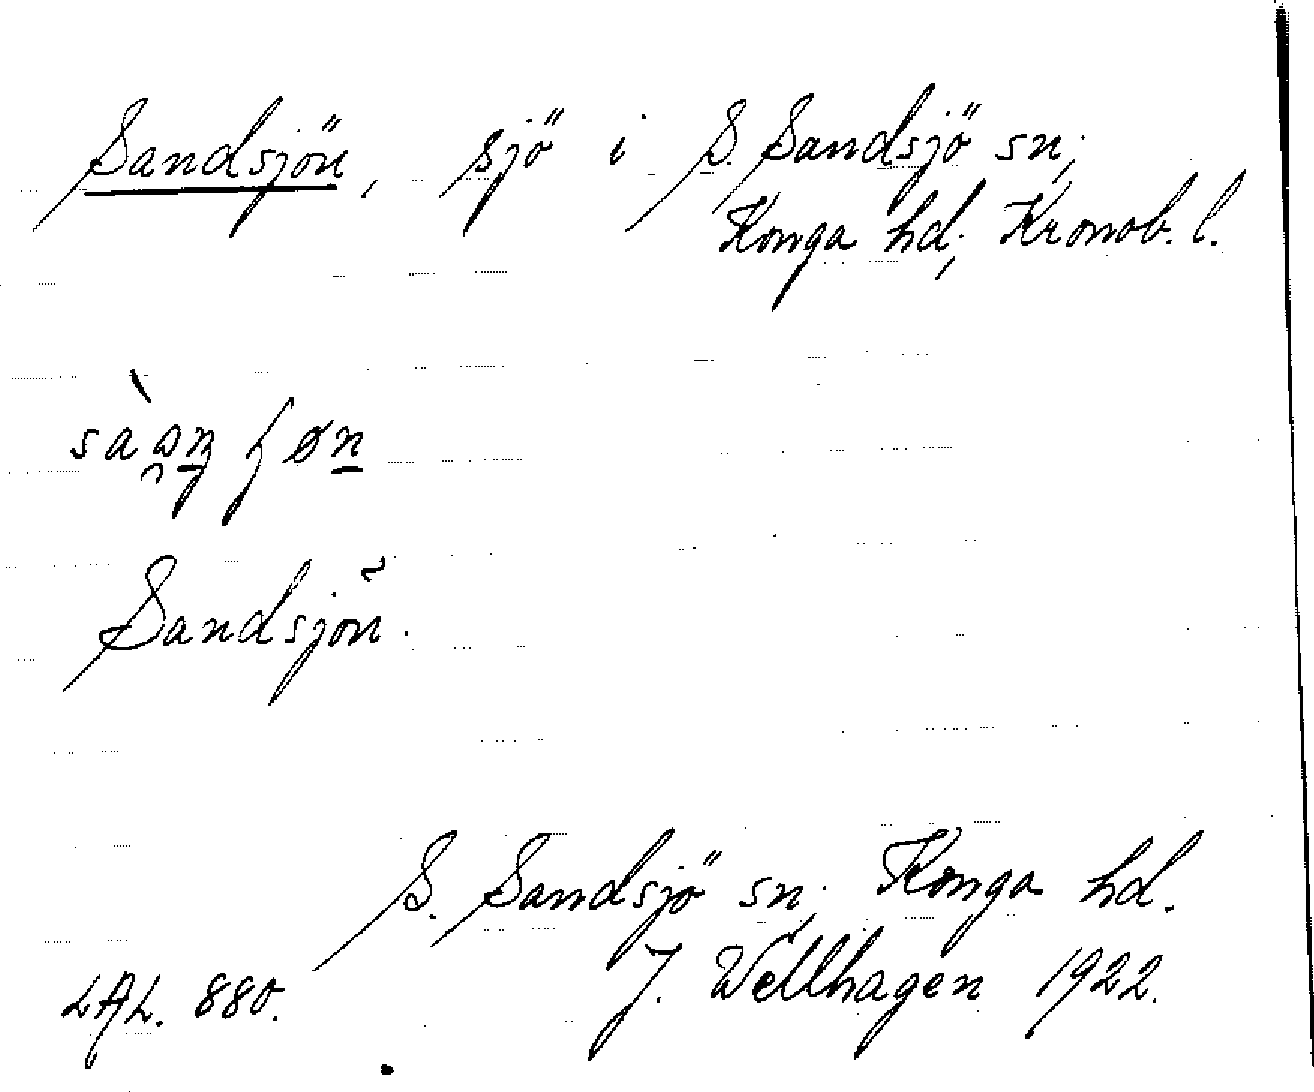 Sandsjön, sjö i S. Sandsjö sn,
Konga hd, Kronob. l.
Sandsjön.
S. Sandsjö sn, Konga hd.
LAL. 880. J. Wellhagen 1922.